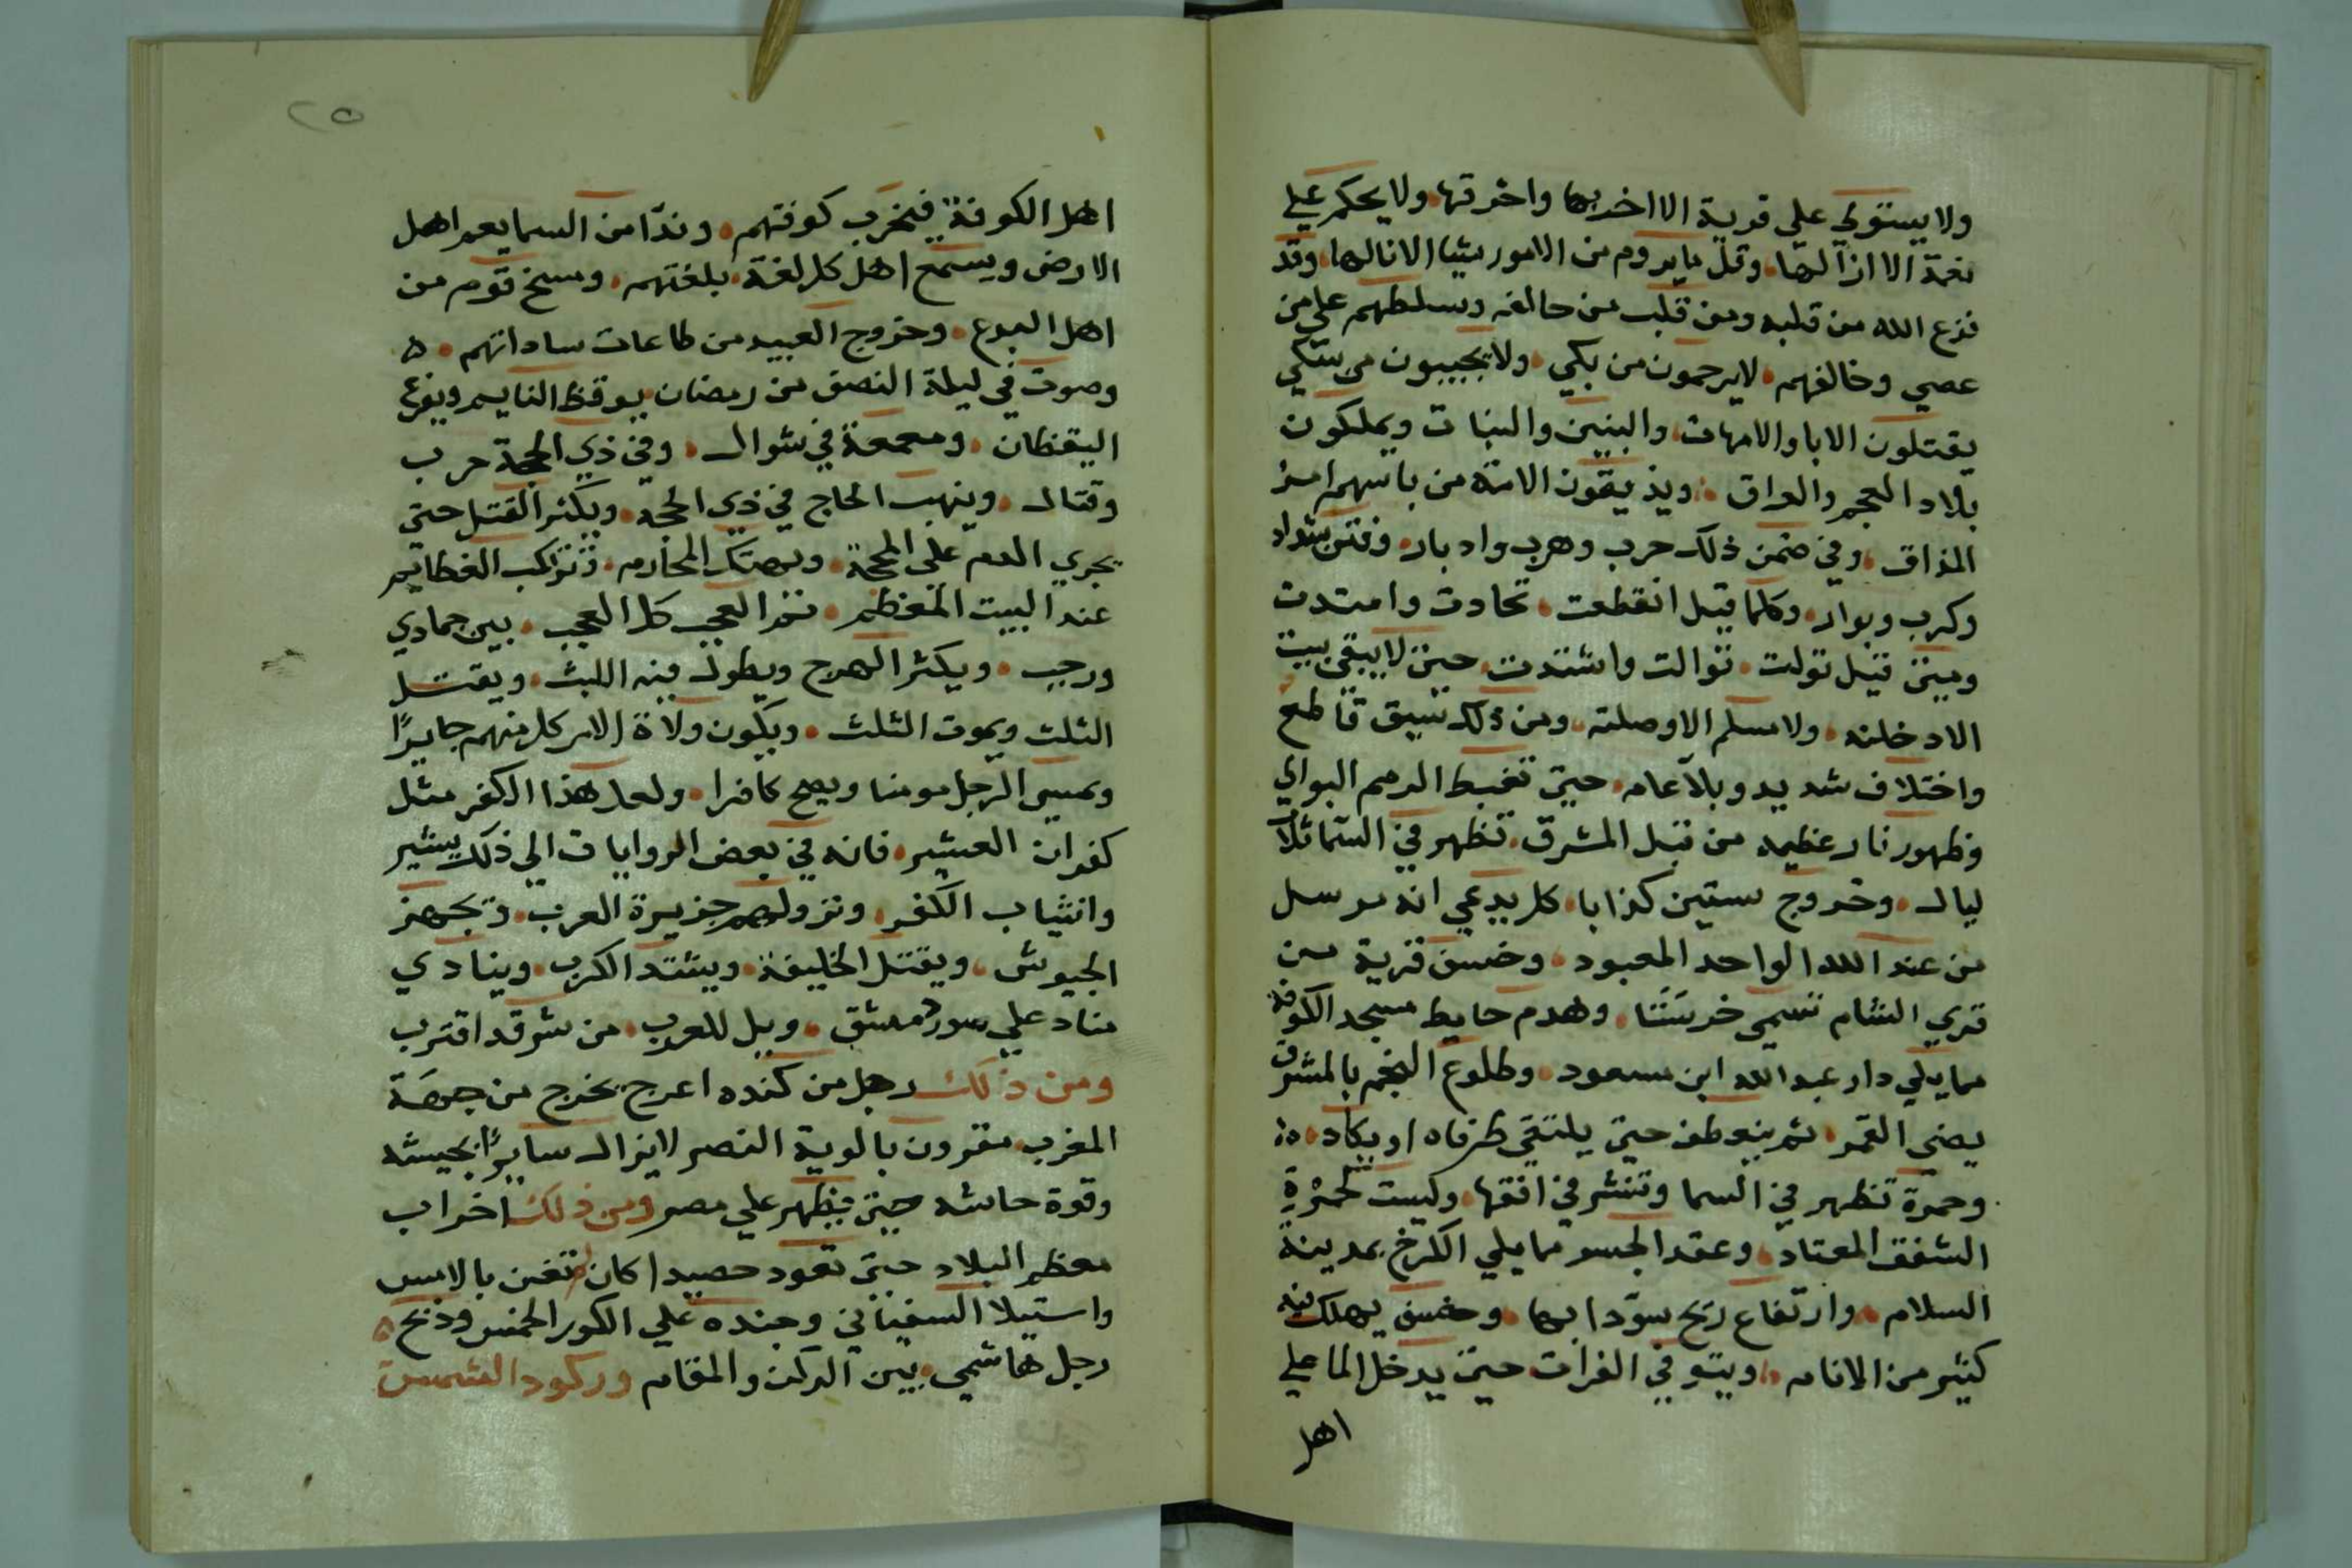 ولا يستولي على قرية الا اخربها واحرقها ولا يحكم علي
نعمة الا ازالها وقل ما يروم من الامور شيا الا نالها وقد
نزع الله من قلبه ومن قلب من حالفه وسلطهم على من
عصي وخالفهم لا يرحمون من بكي ولا يجيبون من شكي
يقتلون الابا والامهات والبنين والبنات ويملكون
بلاد العجم والعراق ويذيقون الامة من باسهم امر
المذاق وفي ضمن ذلك حرب وهرب وادبار وفتن شداد
وكرب وبوار وكلما قيل انقطعت تمادت وامتدت
ومتي قيل تولت توالت واشتدت حتى لا يبقى بيت
الا دخلته ولا مسلم الا وصلته ومن ذلك سيف قاطع
واختلاف شديد وبلا عام حتى تغبط الرمم البوالي
وظهور نار عظيمه من قبل المشرق تظهر في السما ثلاث
ليال وخروج ستين كذابا كل يدعي انه مرسل
من عند الله الواحد المعبود وخسف قرية من
قري الشام تسمى خرستا وهدم حايط مسجد الكوفة
مما يلي دار عبد الله ابن مسعود وطلوع النجم بالمشرق
يضي القمر ثم ينعطف حتى يلتقى طرفاه او يكاد
وحمرة تظهر في السما وتنشر في افقها وليست كحمرة
الشفق المعتاد وعقد الجسر مما يلي الكرخ بمدينة
السلام وارتفاع ريح سودا بها وخسف يهلك فيه
كثير من الانام ويبثو في الفرات حتى يدخل الما علي
اهل
٢٥
اهل الكوفة فيخرب كوفتهم وندا من السما يعم اهل
الارض ويسمع اهل كل لغة بلغتهم ومسخ قوم من
اهل البدع وخروج العبيد من طاعات ساداتهم ه
وصوت في ليلة النصف من رمضان يوقظ النايم ويفزع
اليقظان ومعمعة في شوال وفي ذي الحجة حرب
وقتال وينهب الحاج في ذي الحجة ويكثر القتل حتى
يجري الدم على المحجة وتهتك المحارم وتركب العظايم
عند البيت المعظم ثم العجب كل العجب بين جمادي
ورجب ويكثر الهرج ويطول فيه اللبث ويقتل
الثلث ويموت الثلث ويكون ولاة الامر كل منهم جايرًا
ويمسي الرجل مومنا ويصبح كافرا ولعل هذا الكفر مثل
كفران العشير فانه في بعض الروايات الي ذلك يشير
وانثياب الكفر ونزولهم جزيرة العرب وتجهز
الجيوش ويقتل الخليفة ويشتد الكرب وينادي
مناد علي سور دمشق ويل للعرب من شر قد اقترب
ومن ذلك رجل من كنده اعرج يخرج من جهة
المغرب مقرون بالوية النصر لا يزال سايرًا بجيشه
وقوة جاشه حتى يظهر علي مصر ومن ذلك اخراب
معظم البلاد حتى تعود حصيدا كان لم تغن بالامس
واستيلا السفياني وجنده علي الكور الخمس وذبح
رجل هاشمي بين الركن والمقام وركود الشمس